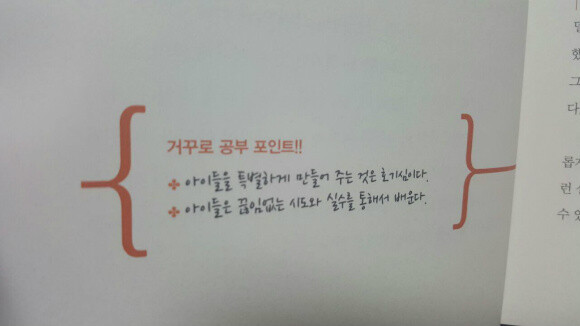 거꾸로 공부 포인트!!
아이들을 특별하게 만들어 주는 것은 호기심이다.
아이들은 끊임없는 시도와 실수를 통해서 배운다.
했
그
다
런
수 있